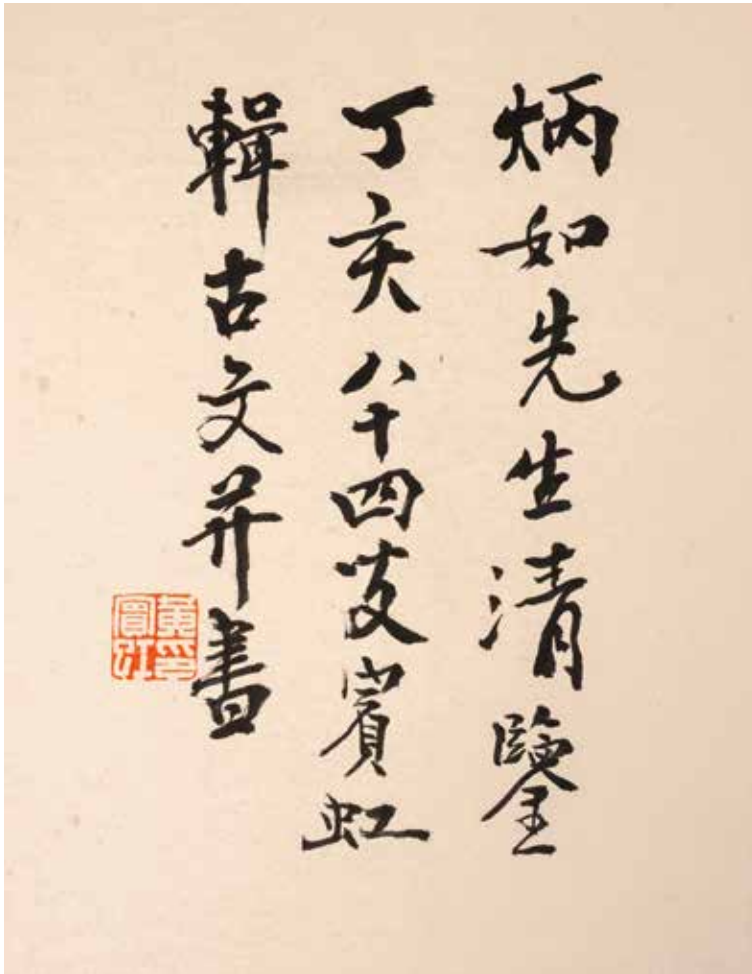 炳如先生清鑒
丁亥八十四叟賓虹
輯古文并書
黃印
賓虹